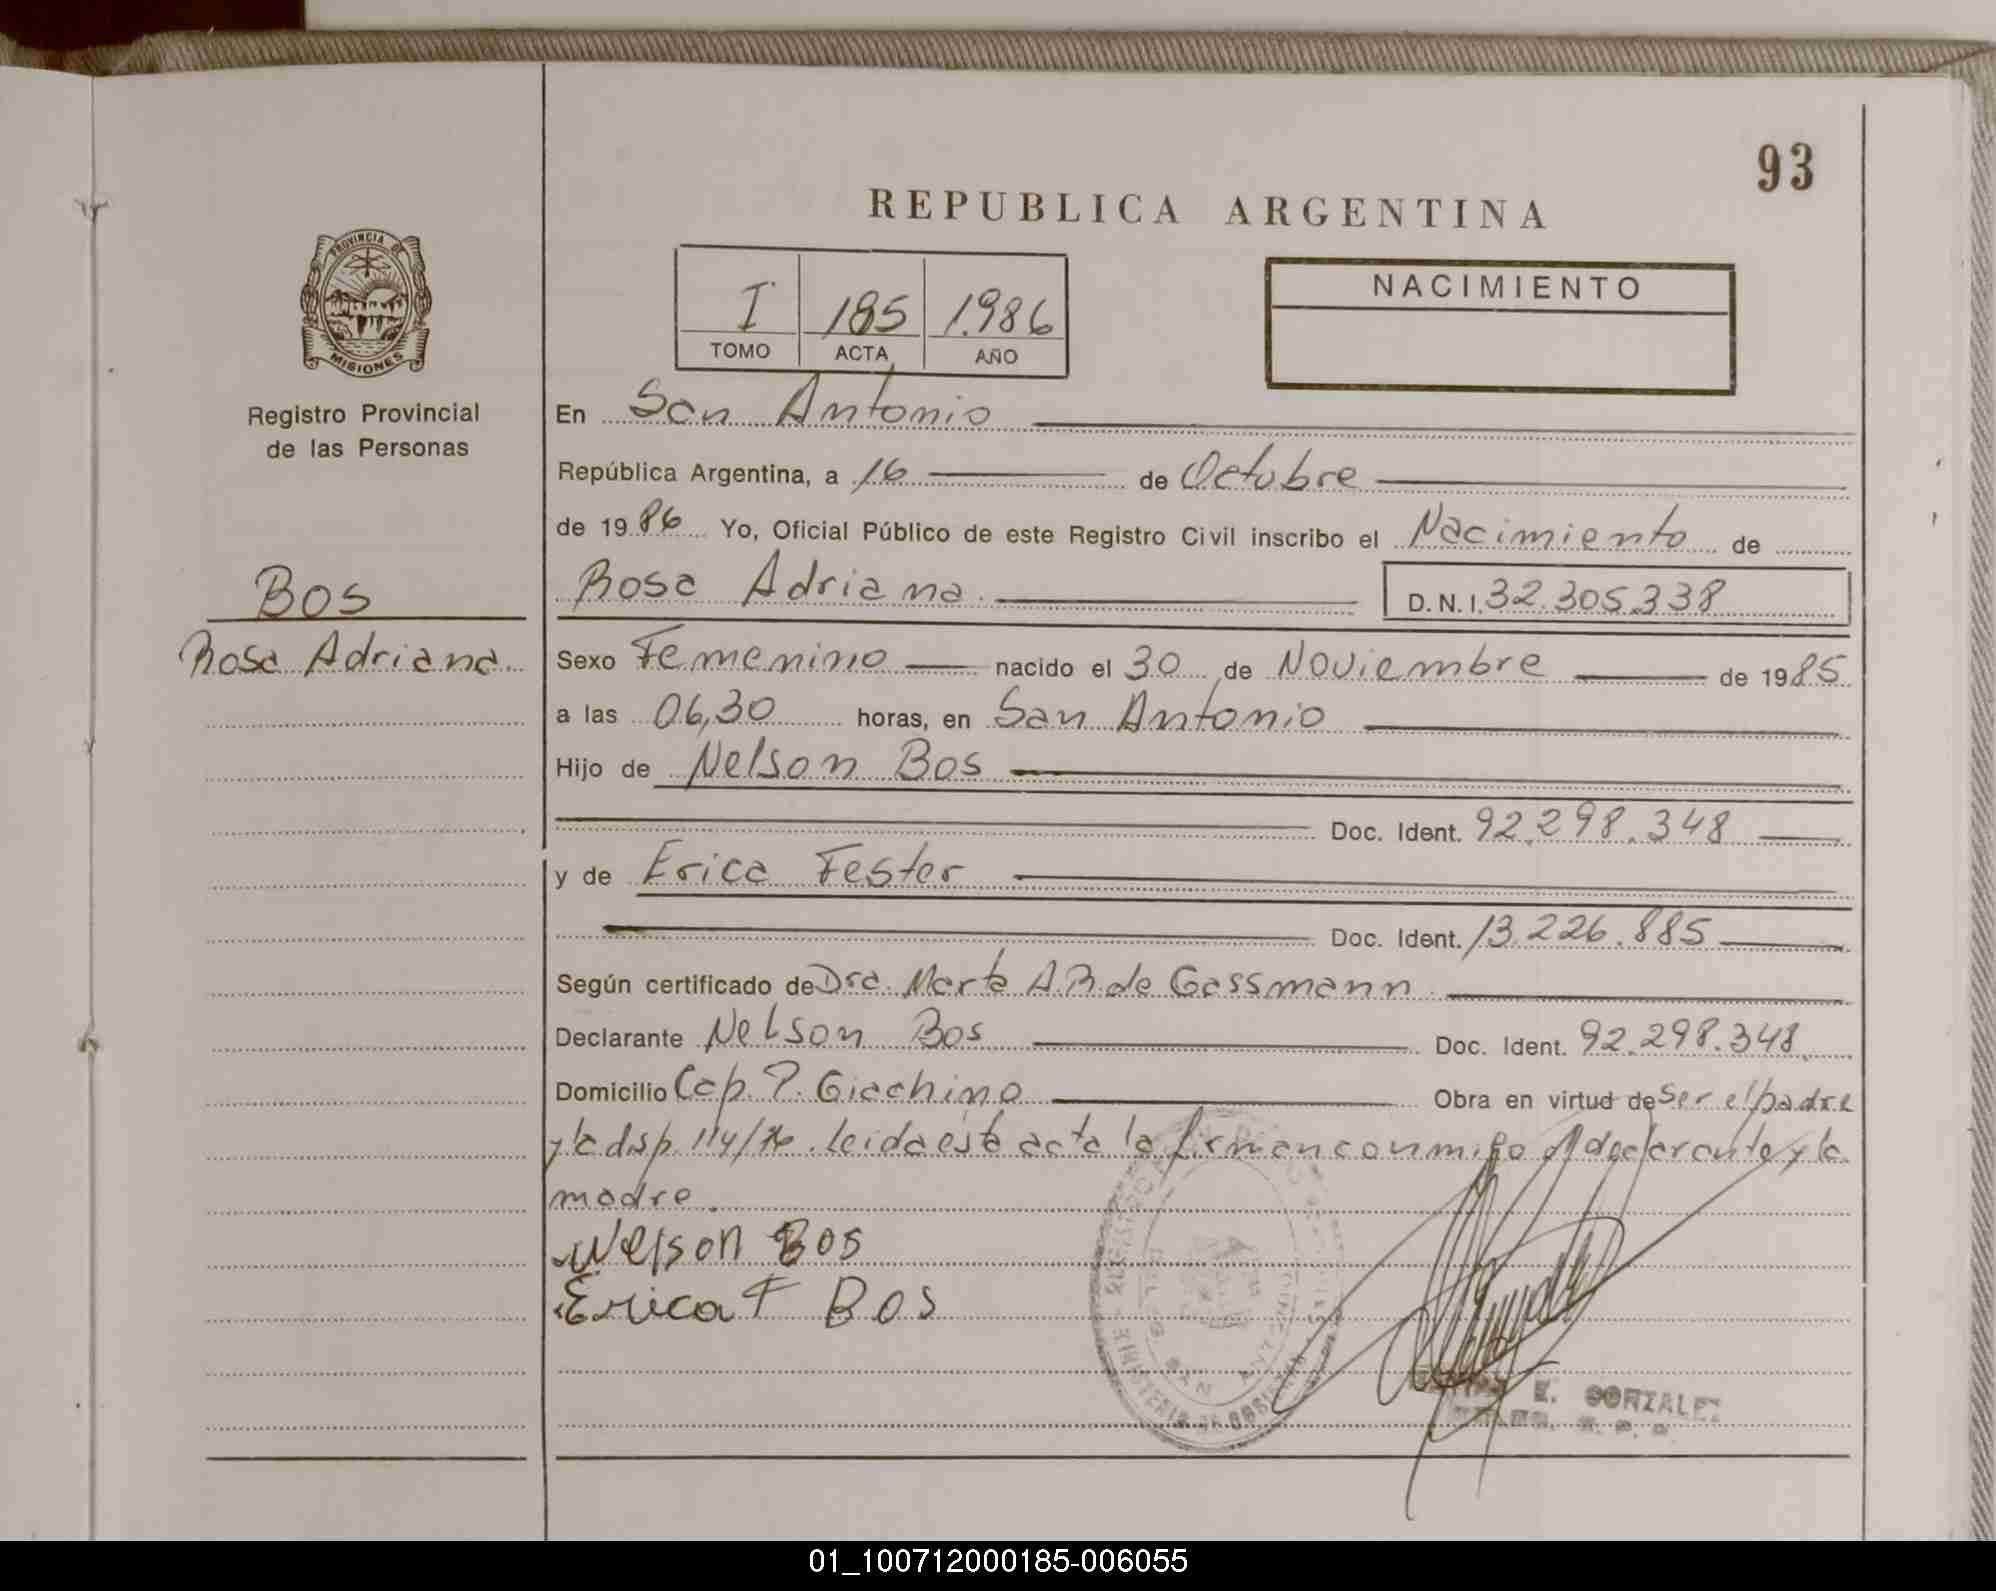 93
REPUBLICA ARGENTINA
PROVINCIA DE
MISIONES
Registro Provincial
de las Personas
I 185 1.986
TOMO ACTA AÑO
NACIMIENTO
En San Antonio
República Argentina, a 16 de Octubre
de 1986 Yo, Oficial Público de este Registro Civil inscribo el Nacimiento de
Bos
Rosa Adriana D.N.I. 32.305.338
Rosa Adriana
Sexo Femenino nacido el 30 de Noviembre de 1985
a las 06,30 horas, en San Antonio
Hijo de Nelson Bos
Doc. Ident. 92.298.348
y de Erica Fester
Doc. Ident. 13.226.885
Según certificado de Dra. Marta A.R. de Gassmann
Declarante Nelson Bos Doc. Ident. 92.298.348
Domicilio Cap. P. Giachino Obra en virtud de ser el padre
y la disp. 114/76. Leida esta acta la firman conmigo el declarante y la
madre.
Nelson Bos
Erica F Bos
E. GONZALEZ
01_100712000185-006055